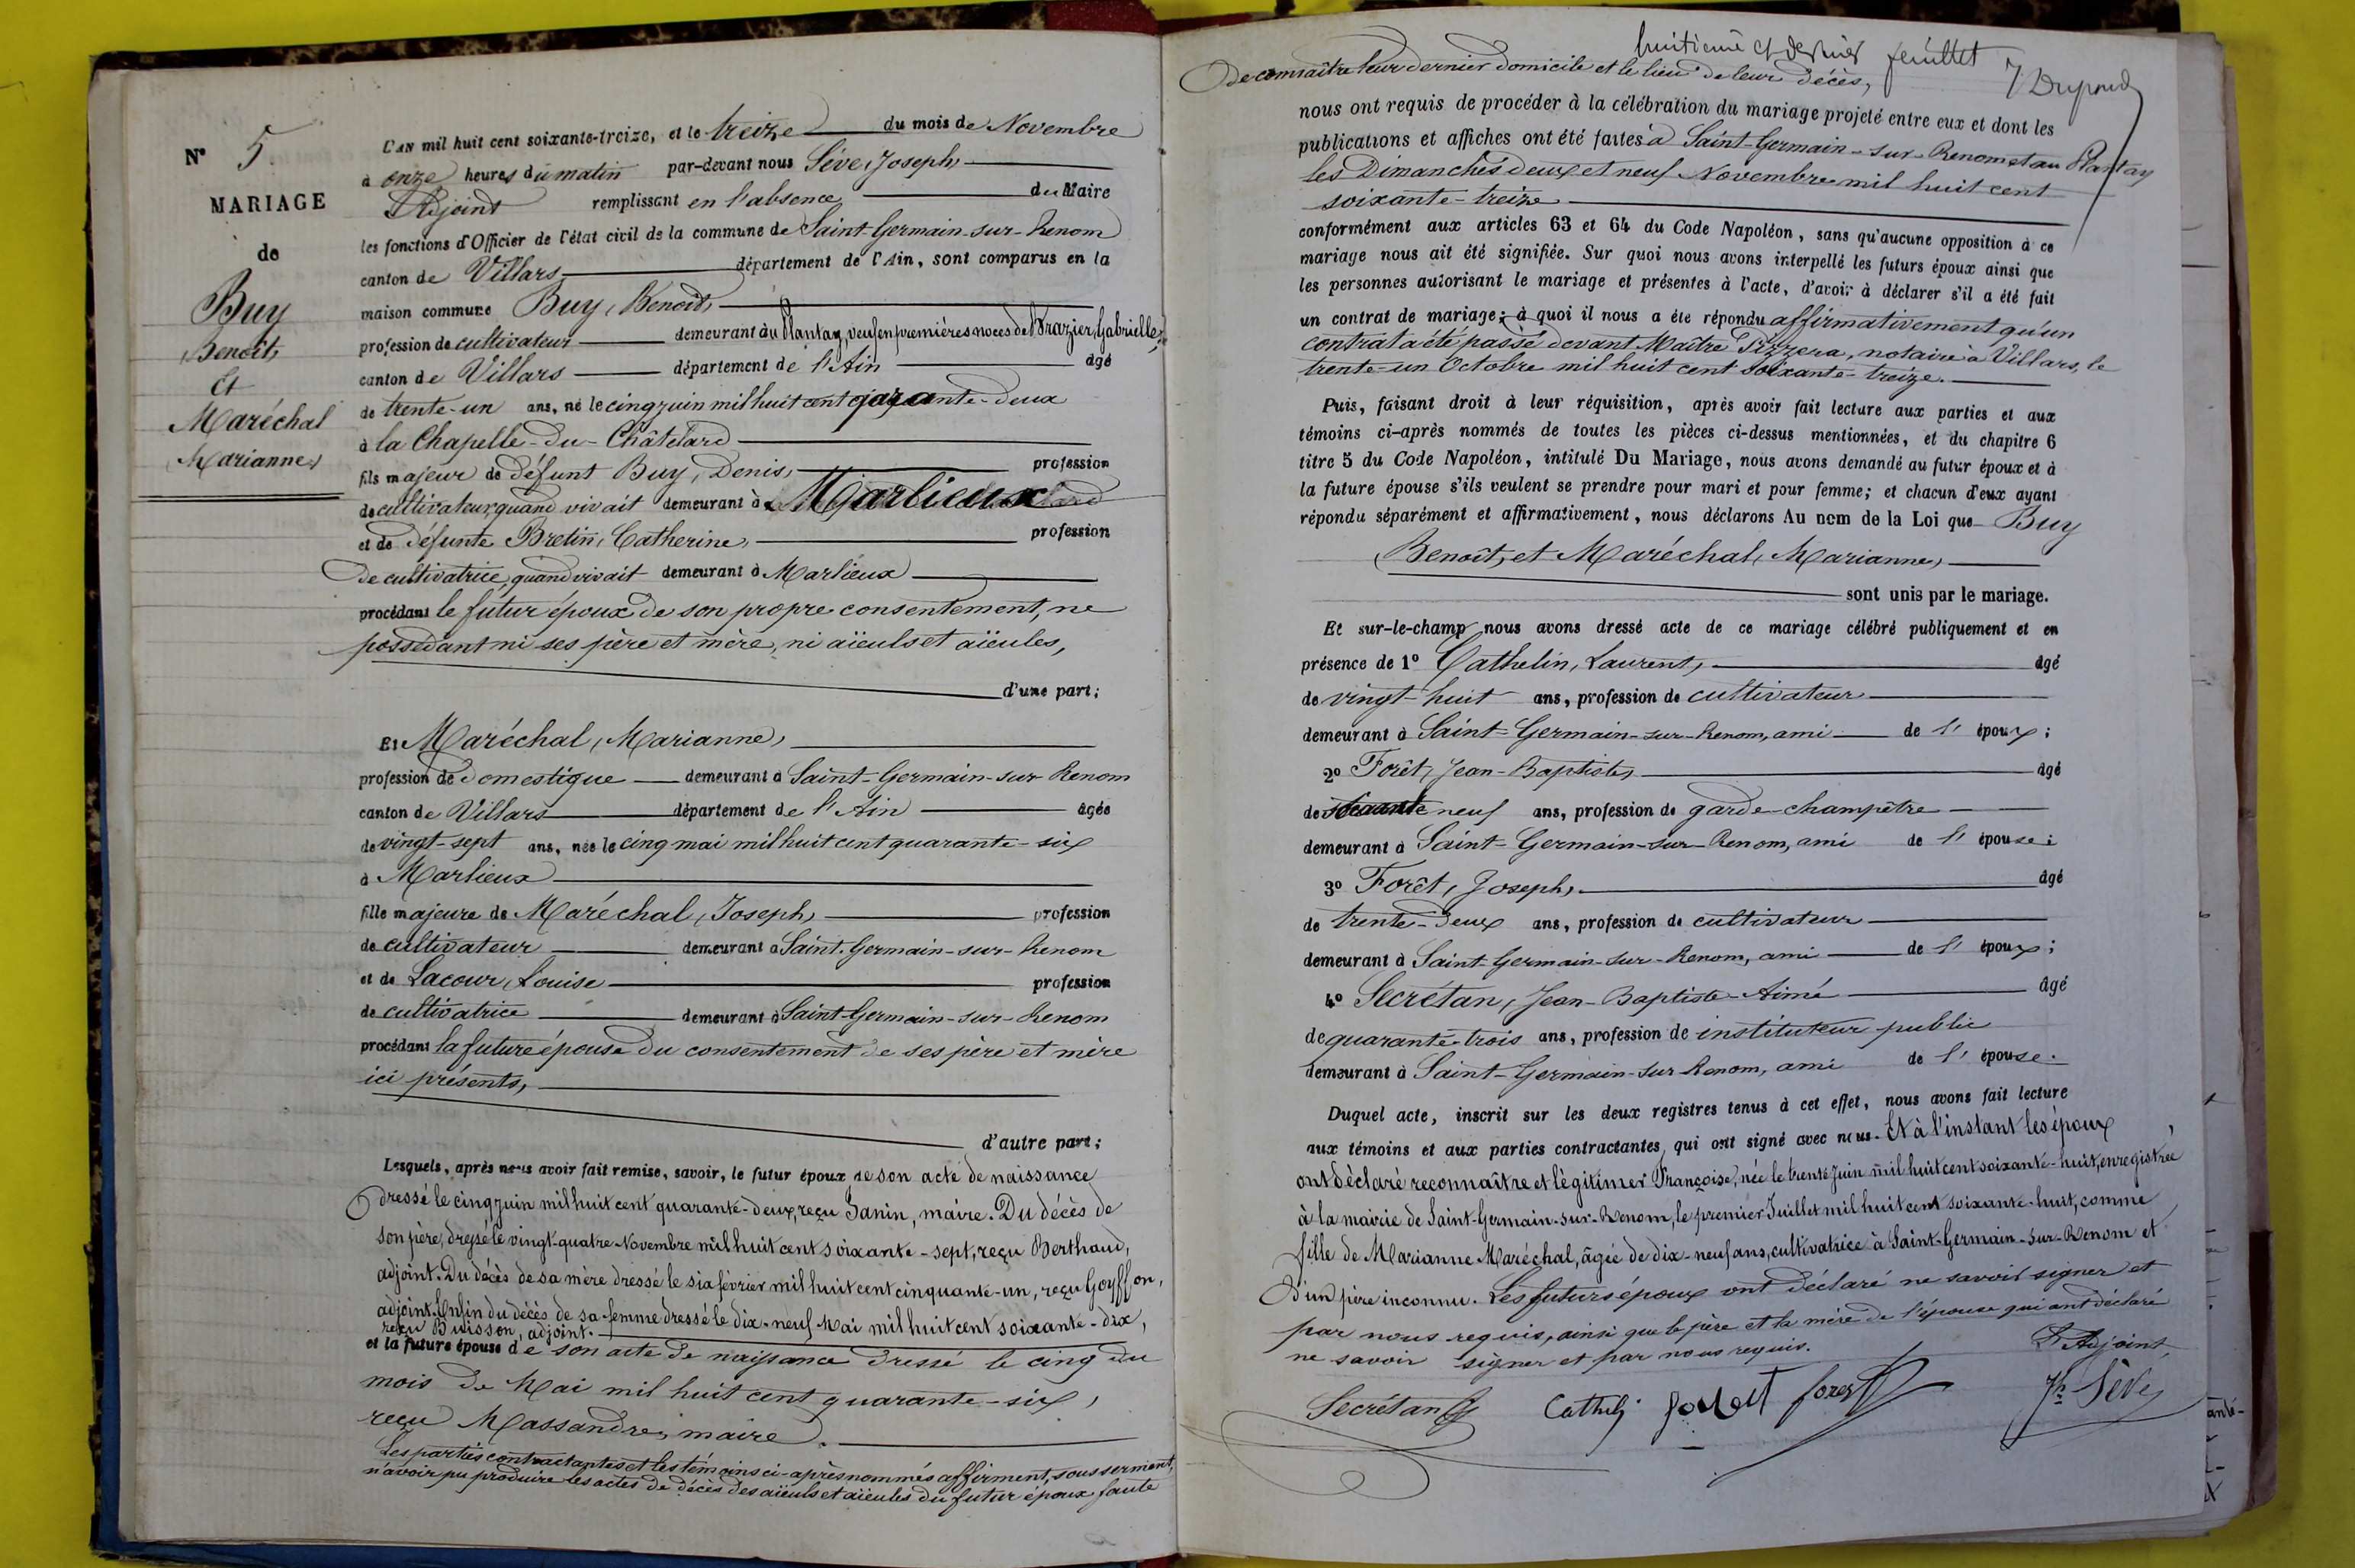 N° 5
MARIAGE
de
Buy
Benoît,
et
Maréchal
Marianne,
L'AN mil huit cent soixante-treize, et le treize du mois de Novembre
à onze heures du matin par-devant nous Sève, Joseph,
Adjoint remplissant en l'absence du Maire
les fonctions d'Officier de l'état civil de la commune de Saint-Germain-sur-Renom
canton de Villars département de l'Ain, sont comparus en la
maison commune Buy, Benoît,
profession de cultivateur demeurant au Plantay, veuf en premières noces de Brazier, Gabrielle,
canton de Villars département de l'Ain âgé
de trente-un ans, né le cinq juin mil huit cent quarante-deux
à la Chapelle-du-Châtelard
fils majeur de défunt Buy, Denis, profession
de cultivateur, quand vivait demeurant à Marlieux
et de défunte Bretin, Catherine, profession
de cultivatrice, quand vivait demeurant à Marlieux
procédant le futur époux de son propre consentement, ne
possédant ni ses père et mère, ni aïeuls et aïeules,
d'une part;
Et Maréchal, Marianne,
profession de domestique demeurant à Saint-Germain-sur-Renom
canton de Villars département de l'Ain âgée
de vingt-sept ans, née le cinq mai mil huit cent quarante-six
à Marlieux
fille majeure de Maréchal, Joseph, profession
de cultivateur demeurant à Saint-Germain-sur-Renom
et de Lacour, Louise profession
de cultivatrice demeurant à Saint-Germain-sur-Renom
procédant la future épouse du consentement de ses père et mère
ici présents,
d'autre part;
Lesquels, après nous avoir fait remise, savoir, le futur époux de son acte de naissance
dressé le cinq juin mil huit cent quarante-deux, reçu Janin, maire. Du décès de
son père, dressé le vingt-quatre Novembre mil huit cent soixante-sept, reçu Berthaud,
adjoint. Du décès de sa mère dressé le six février mil huit cent cinquante-un, reçu Goyffon,
adjoint. Enfin du décès de sa femme dressé le dix-neuf Mai mil huit cent soixante-dix,
reçu Buisson, adjoint.
et la future épouse de son acte de naissance dressé le cinq du
mois de Mai mil huit cent quarante-six,
reçu Massandre, maire.
Les parties contractantes et les témoins ci-après nommés affirment, sous serment,
n'avoir pu produire les actes de décès des aïeuls et aïeules du futur époux faute
huitième et dernier feuillet
de connaître leur dernier domicile et le lieu de leur décès,
nous ont requis de procéder à la célébration du mariage projeté entre eux et dont les
publications et affiches ont été faites à Saint-Germain-sur-Renom et au Plantay
les Dimanches deux et neuf Novembre mil huit cent
soixante-treize
conformément aux articles 63 et 64 du Code Napoléon, sans qu'aucune opposition à ce
mariage nous ait été signifiée. Sur quoi nous avons interpellé les futurs époux ainsi que
les personnes autorisant le mariage et présentes à l'acte, d'avoir à déclarer s'il a été fait
un contrat de mariage; à quoi il nous a été répondu affirmativement qu'un
contrat a été passé devant Maître Pizzera, notaire à Villars, le
trente-un Octobre mil huit cent soixante-treize.
Puis, faisant droit à leur réquisition, après avoir fait lecture aux parties et aux
témoins ci-après nommés de toutes les pièces ci-dessus mentionnées, et du chapitre 6
titre 5 du Code Napoléon, intitulé Du Mariage, nous avons demandé au futur époux et à
la future épouse s'ils veulent se prendre pour mari et pour femme; et chacun d'eux ayant
répondu séparément et affirmativement, nous déclarons Au nom de la Loi que Buy
Benoît, et Maréchal, Marianne,
sont unis par le mariage.
Et sur-le-champ nous avons dressé acte de ce mariage célébré publiquement et en
présence de 1° Cathelin, Laurent, âgé
de vingt-huit ans, profession de cultivateur
demeurant à Saint-Germain-sur-Renom, ami de l'époux;
2° Forêt, Jean-Baptiste, âgé
de neuf ans, profession de garde-champêtre
demeurant à Saint-Germain-sur-Renom, ami de l'épouse;
3° Forêt, Joseph, âgé
de trente-deux ans, profession de cultivateur
demeurant à Saint-Germain-sur-Renom, ami de l'époux;
4° Secrétan, Jean-Baptiste-Aimé âgé
de quarante-trois ans, profession de instituteur public
demeurant à Saint-Germain-sur-Renom, ami de l'épouse.
Duquel acte, inscrit sur les deux registres tenus à cet effet, nous avons fait lecture
aux témoins et aux parties contractantes, qui ont signé avec nous. Et à l'instant les époux
ont déclaré reconnaître et légitimer Françoise, née le trente Juin mil huit cent soixante-huit, enregistrée
à la mairie de Saint-Germain-sur-Renom, le premier Juillet mil huit cent soixante-huit, comme
fille de Marianne Maréchal, âgée de dix-neuf ans, cultivatrice à Saint-Germain-sur-Renom et
d'un père inconnu. Les futurs époux ont déclaré ne savoir signer et
par nous requis, ainsi que le père et la mère de l'épouse qui ont déclaré
ne savoir signer et par nous requis. L'Adjoint,
Secrétan forest Jh Sève